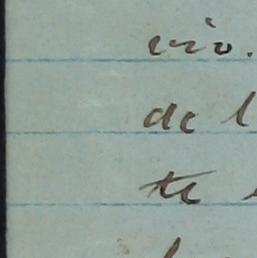 vio.
de l
te